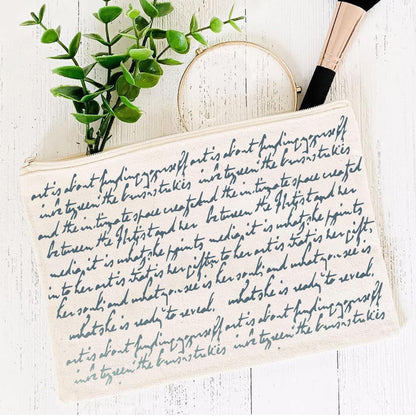 art is about finding yourself art is about finding yourself
inbetween the brushstrokes inbetween the brushstrokes
and the intimate space created and the intimate space created
between the Artist and her between the Artist and her
media, it is what she paints media, it is what she paints
into her art is that is her gift, to her art is that is her gift,
her soul, and what you see is her soul, and what you see is
what she is ready to reveal. what she is ready to reveal.
art is about finding yourself art is about finding yourself
inbetween the brushstrokes inbetween the brushstrokes